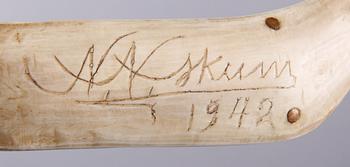 N. N. Skum
1942